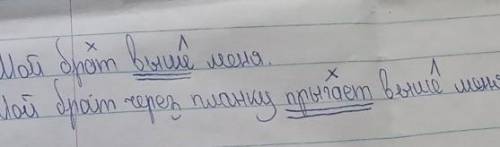 Мой брат выше меня.
Мой брат через планку прыгает выше меня